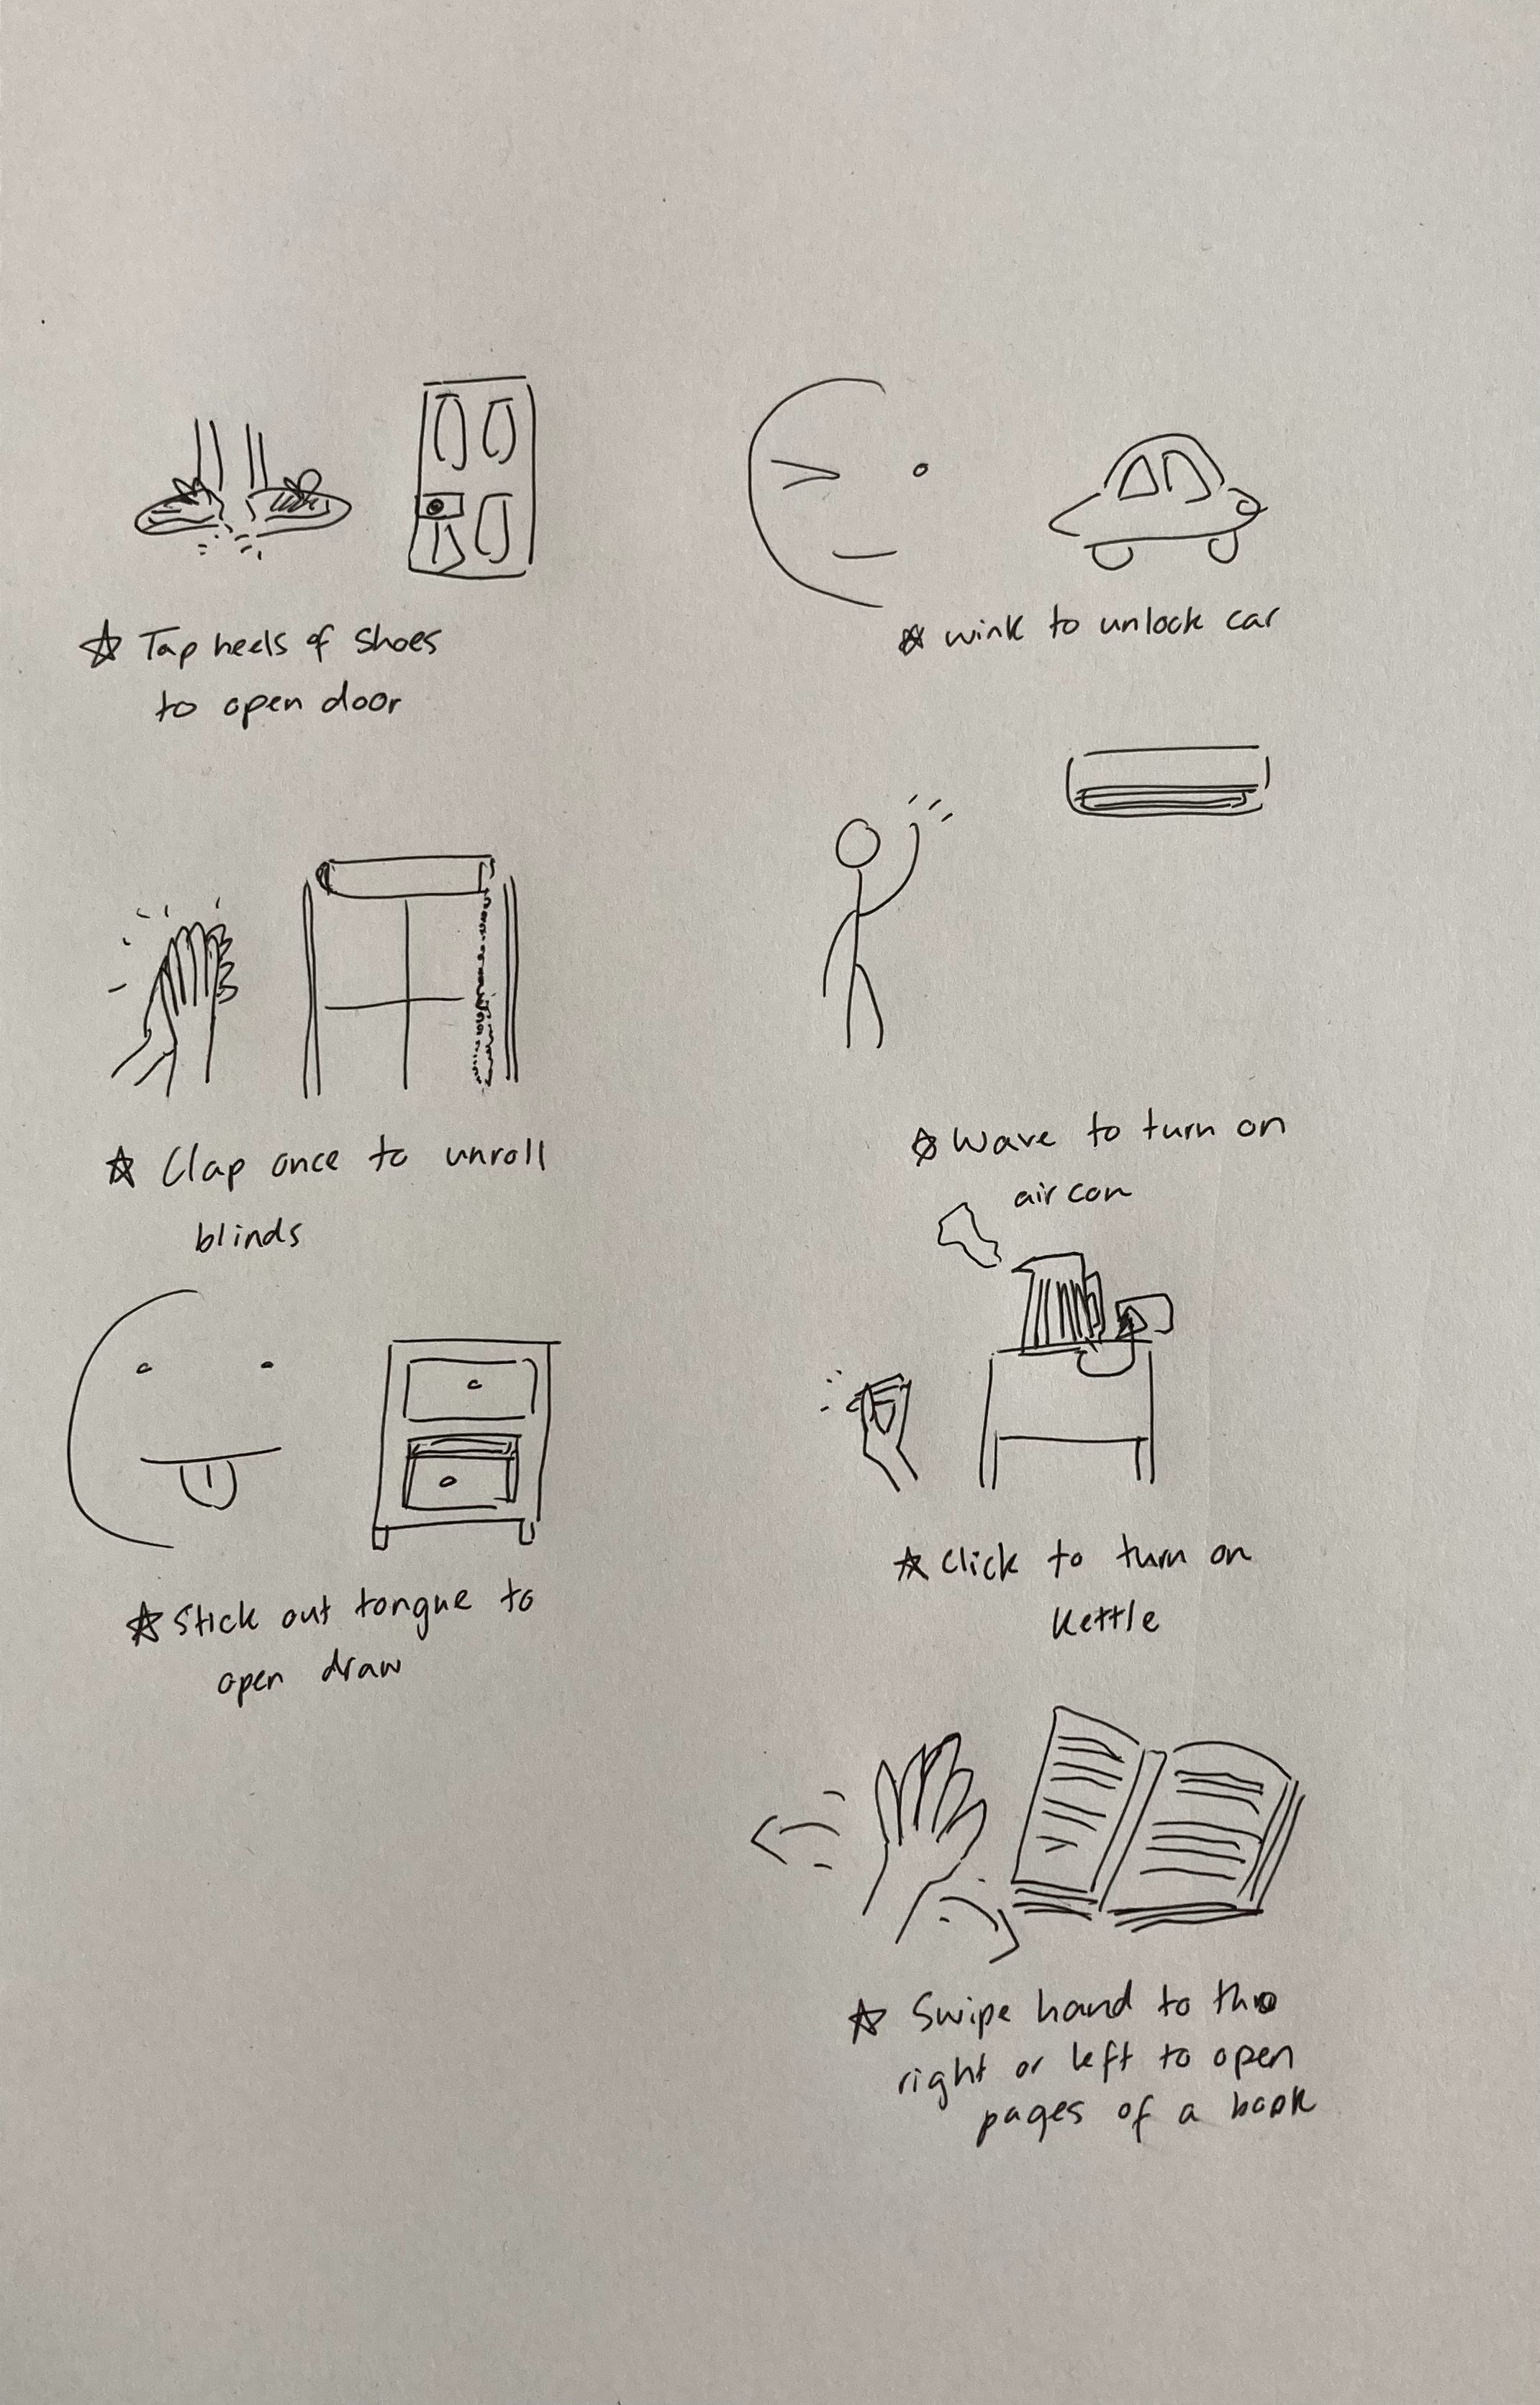 ☆ Tap heels of shoes
to open door
☆ wink to unlock car
☆ Clap once to unroll
blinds
☆ Wave to turn on
air con
☆ Stick out tongue to
open draw
☆ Click to turn on
kettle
☆ Swipe hand to the
right or left to open
pages of a book